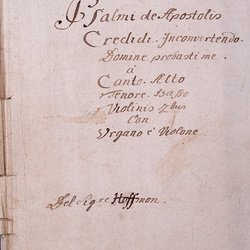 Psalmi de Apostolis
Credidi. Inconvertendo.
Domine probasti me.
à
Canto. Alto
Tenore. Basso
Violinis 2bus
Con
Organo è Violone
Del Sigre Hoffmon.